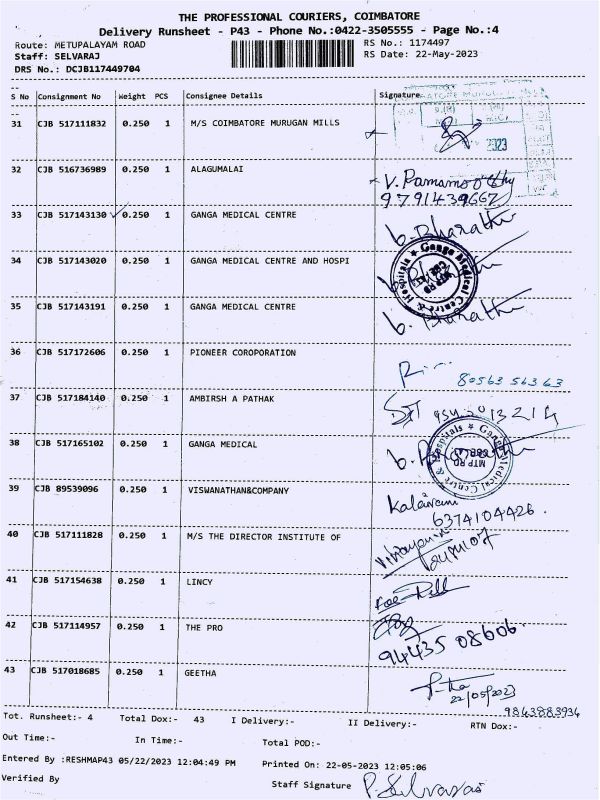 THE PROFESSIONAL COURIERS, COIMBATORE
Delivery Runsheet - P43 - Phone No.:0422-3505555 - Page No.:4
Route: METUPALAYAM ROAD RS No.: 1174497
Staff: SELVARAJ RS Date: 22-May-2023
DRS No.: DCJB117449704
S No Consignment No Weight PCS Consignee Details Signature
31 CJB 517111832 0.250 1 M/S COIMBATORE MURUGAN MILLS
32 CJB 516736989 0.250 1 ALAGUMALAI
9791439667
33 CJB 517143130 0.250 1 GANGA MEDICAL CENTRE b. Bharathi
34 CJB 517143020 0.250 1 GANGA MEDICAL CENTRE AND HOSPI
Ganga Medical Centre & Hospitals
MTP RD
35 CJB 517143191 0.250 1 GANGA MEDICAL CENTRE b. Bharathi
36 CJB 517172606 0.250 1 PIONEER COROPORATION
80563 56363
37 CJB 517184140 0.250 1 AMBIRSH A PATHAK
38 CJB 517165102 0.250 1 GANGA MEDICAL
Ganga Medical Centre & Hospitals
MTP RD
39 CJB 89539096 0.250 1 VISWANATHAN&COMPANY
6374104426.
40 CJB 517111828 0.250 1 M/S THE DIRECTOR INSTITUTE OF
41 CJB 517154638 0.250 1 LINCY
42 CJB 517114957 0.250 1 THE PRO
94435 08606.
43 CJB 517018685 0.250 1 GEETHA
22/05/2023
9843883934
Tot. Runsheet:- 4 Total Dox:- 43 I Delivery:- II Delivery:- RTN Dox:-
Out Time:- In Time:- Total POD:-
Entered By :RESHMAP43 05/22/2023 12:04:49 PM Printed On: 22-05-2023 12:05:06
Verified By Staff Signature P. Selvaraj